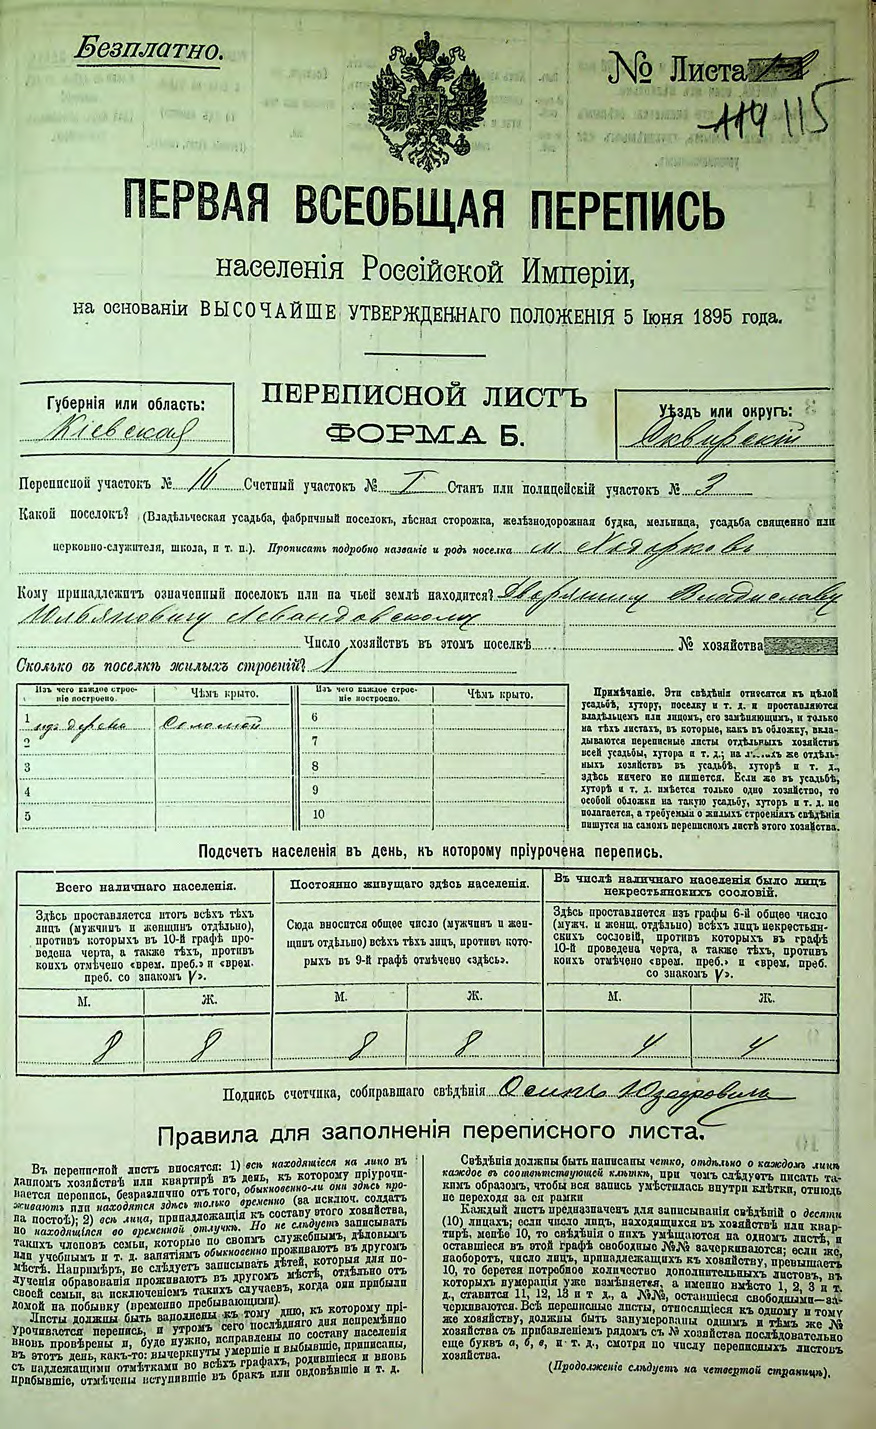 Безплатно.
№ Листа
114 115
ПЕРВАЯ ВСЕОБЩАЯ ПЕРЕПИСЬ
населенія Россійской Имперіи,
на основаніи ВЫСОЧАЙШЕ УТВЕРЖДЕННАГО ПОЛОЖЕНІЯ 5 Іюня 1895 года.
Губернія или область:
Кіевская
ПЕРЕПИСНОЙ ЛИСТЪ
ФОРМА Б.
Уѣздъ или округъ:
Сквирскій
Переписной участокъ № 16 Счетный участокъ № I Станъ или полицейскій участокъ № 3
Какой поселокъ? (Владѣльческая усадьба, фабричный поселокъ, лѣсная сторожка, желѣзнодорожная будка, мельница, усадьба священно или
церковно-служителя, школа, и т. п.). Прописать подробно названіе и родъ поселка м. Ходорковъ
Кому принадлежитъ означенный поселокъ или на чьей землѣ находится? Дворянину Владиславу
Юльяновичу Левандовскому
Число хозяйствъ въ этомъ поселкѣ № хозяйства
Сколько въ поселкѣ жилыхъ строеній? 1
Изъ чего каждое строеніе построено. Чѣмъ крыто. Изъ чего каждое строеніе построено. Чѣмъ крыто.
1 изъ дерева Соломой 6
2 7
3 8
4 9
5 10
Примѣчаніе. Эти свѣдѣнія относятся къ цѣлой
усадьбѣ, хутору, поселку и т. д. и проставляются
владѣльцемъ или лицомъ, его замѣняющимъ, и только
на тѣхъ листахъ, въ которые, какъ въ обложку, вкла-
дываются переписные листы отдѣльныхъ хозяйствъ
всей усадьбы, хутора и т. д.; на же отдѣль-
ныхъ хозяйствъ въ усадьбѣ, хуторѣ и т. д.,
здѣсь ничего не пишется. Если же въ усадьбѣ,
хуторѣ и т. д. имѣется только одно хозяйство, то
особой обложки на такую усадьбу, хуторъ и т. д. не
полагается, а требуемыя о жилыхъ строеніяхъ свѣдѣнія
пишутся на самомъ переписномъ листѣ этого хозяйства.
Подсчетъ населенія въ день, къ которому пріурочена перепись.
Всего наличнаго населенія.
Здѣсь проставляется итогъ всѣхъ тѣхъ
лицъ (мужчинъ и женщинъ отдѣльно),
противъ которыхъ въ 10-й графѣ про-
ведена черта, а также тѣхъ, противъ
коихъ отмѣчено «врем. преб.» и «врем.
преб. со знакомъ V».
М. Ж.
8 8
Постоянно живущаго здѣсь населенія.
Сюда вносится общее число (мужчинъ и жен-
щинъ отдѣльно) всѣхъ тѣхъ лицъ, противъ кото-
рыхъ въ 9-й графѣ отмѣчено «здѣсь».
М. Ж.
8 8
Въ числѣ наличнаго населенія было лицъ
некрестьянскихъ сословій.
Здѣсь проставляется изъ графы 6-й общее число
(мужч. и женщ. отдѣльно) всѣхъ лицъ некрестьян-
скихъ сословій, противъ которыхъ въ графѣ
10-й проведена черта, а также тѣхъ, противъ
коихъ отмѣчено «врем. преб.» и «врем. преб.
со знакомъ V».
М. Ж.
4 4
Подпись счетчика, собиравшаго свѣдѣнія Осипъ
Правила для заполненія переписного листа.
Въ переписной листъ вносятся: 1) всѣ находящіеся на лицо въ
данномъ хозяйствѣ или квартирѣ въ день, къ которому пріурочи-
вается перепись, безразлично отъ того, обыкновенно-ли они здѣсь про-
живаютъ или находятся здѣсь только временно (за исключ. солдатъ
на постоѣ); 2) всѣ лица, принадлежащія къ составу этого хозяйства,
но находящіяся во временной отлучкѣ. Но не слѣдуетъ записывать
такихъ членовъ семьи, которые по своимъ служебнымъ, дѣловымъ
или учебнымъ и т. д. занятіямъ обыкновенно проживаютъ въ другомъ
мѣстѣ. Напримѣръ, не слѣдуетъ записывать дѣтей, которыя для по-
лученія образованія проживаютъ въ другомъ мѣстѣ, отдѣльно отъ
своей семьи, за исключеніемъ такихъ случаевъ, когда они прибыли
домой на побывку (временно пребывающими).
Листы должны быть заполнены къ тому дню, къ которому прі-
урочивается перепись, и утромъ сего послѣдняго дня непремѣнно
вновь провѣрены и, буде нужно, исправлены по составу населенія
въ этотъ день, какъ-то: вычеркнуты умершіе и выбывшіе, приписаны,
съ надлежащими отмѣтками во всѣхъ графахъ, родившіеся и вновь
прибывшіе, отмѣчены вступившіе въ бракъ или овдовѣвшіе и т. д.
Свѣдѣнія должны быть написаны четко, отдѣльно о каждомъ лицѣ
каждое въ соотвѣтствующей клѣткѣ, при чемъ слѣдуетъ писать та-
кимъ образомъ, чтобы вся запись умѣстилась внутри клѣтки, отнюдь
не переходя за ея рамки
Каждый листъ предназначенъ для записыванія свѣдѣній о десяти
(10) лицахъ; если число лицъ, находящихся въ хозяйствѣ или квар-
тирѣ, менѣе 10, то свѣдѣнія о нихъ умѣщаются на одномъ листѣ, и
оставшіеся въ этой графѣ свободные №№ зачеркиваются; если же,
наоборотъ, число лицъ, принадлежащихъ къ хозяйству, превышаетъ
10, то берется потребное количество дополнительныхъ листовъ, въ
которыхъ нумерація уже измѣняется, а именно вмѣсто 1, 2, 3 и т.
д., ставится 11, 12, 13 и т д., а №№, оставшіеся свободными—за-
черкиваются. Всѣ переписные листы, относящіеся къ одному и тому
же хозяйству, должны быть занумерованы однимъ и тѣмъ же №
хозяйства съ прибавленіемъ рядомъ съ № хозяйства послѣдовательно
еще буквъ а, б, в, и т. д., смотря по числу переписныхъ листовъ
хозяйства.
(Продолженіе слѣдуетъ на четвертой страницѣ).